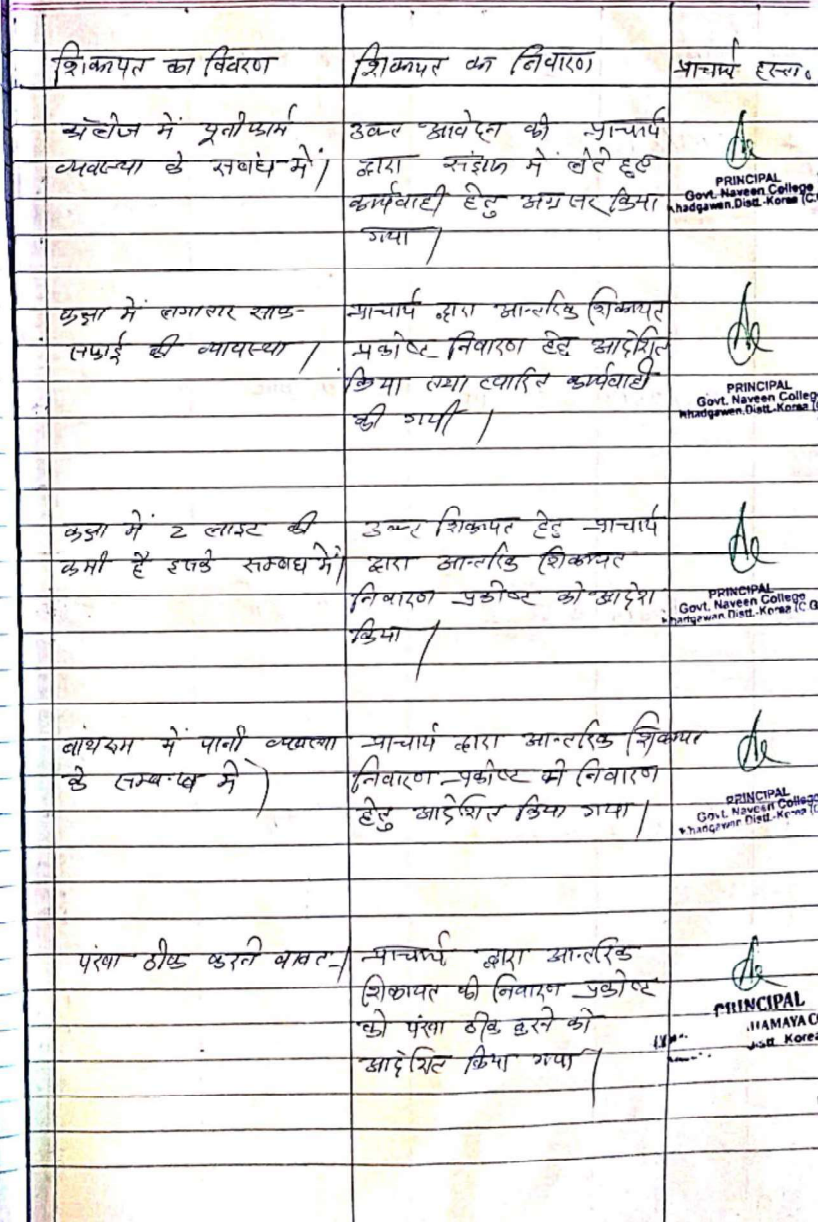 शिकायत का विवरण
शिकायत का निवारण
प्राचार्य हस्ता०
कॉलेज में यूनीफार्म
व्यवस्था के सबांध में।
उक्त आवेदन को प्राचार्य
द्वारा संज्ञान में लेते हुए
कार्यवाही हेतु अग्रसर किया
गया।
PRINCIPAL
Govt. Naveen College
Khadgawan, Distt.-Korea (C.G
कक्षा में लगातार साफ-
सफाई की व्यायस्था।
प्राचार्य द्वारा आन्तरिक शिकायत
प्रकोष्ट निवारण हेतु आदेशित
किया तथा त्वारित कार्यवाही
की गयी।
PRINCIPAL
Govt. Naveen College
Khadgawan, Distt.-Korea (C
कक्षा में 2 लाइट की
कमी है इसके सम्बंध में।
उक्त शिकायत हेतु प्राचार्य
द्वारा आन्तरिक शिकायत
निवारण प्रकोष्ट को आदेश
किया।
PRINCIPAL
Govt. Naveen College
Khadgawan Distt.-Korea (C G
बाथरूम में पानी व्यवस्था
के सम्बन्ध में)
प्राचार्य द्वारा आन्तरिक शिकायत
निवारण प्रकोष्ट को निवारण
हेतु आदेशित किया गया।
PRINCIPAL
Govt. Naveen College
Khadgawan Distt.-Korea (C
पंखा ठीक करने बाबत-।
प्राचार्य द्वारा आन्तरिक
शिकायत की निवारण प्रकोष्ट
को पंखा ठीक करने को
आदेशित किया गया।
PRINCIPAL
HAMAYA CO
Distt. Korea